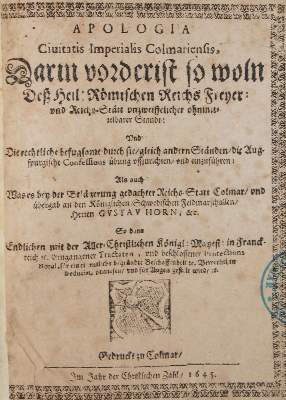 APOLOGIA
Civitatis Imperialis Colmariensis,
Darin vorderist so woln
Deß Heil: Römischen Reichs Freyer:
und Reichs-Statt unzweiffelicher ohnmit-
telbarer Stande:
Und
Die rechtliche befugsame durch sie/gleich andern Ständen/die Aug-
spurgische Confessions übung uffzurichten/und einzuführen:
Als auch
Was es bey der Belägerung gedachter Reichs-Statt Colmar/und
übergab an den Königlichen Schwedischen Feldmarschallen/
Herren GUSTAV HORN, &c.
So dann
Endlichen mit der Aller-Christlichen Königl: Mayest: in Franck-
reich &c. eingangenen Tractaten, und beschlossener Protections
für eine
und für Augen gestelt wird/
Gedruckt zu Colmar/
Im Jahr der Christlichen Zahl/ 1645.